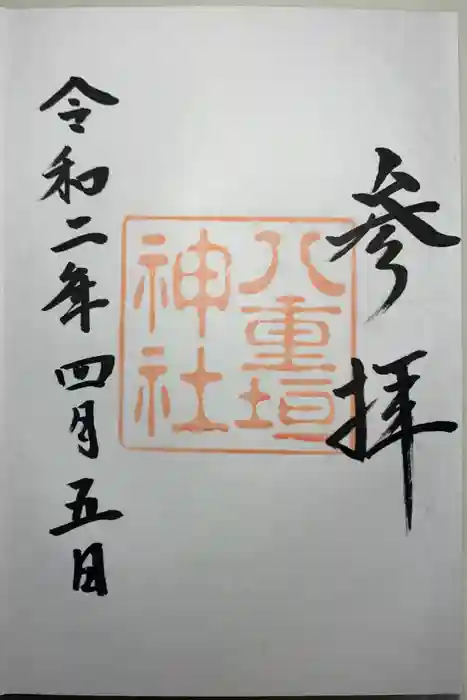 参拝
八重垣
神社
令和二年四月五日